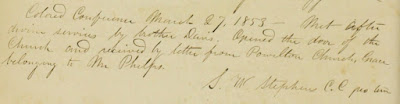 Colored Conference March 27, 1853 — Met after
divine service by brother Davis. Opened the door of the
Church and received by letter from Powelton Church, Isaac
belonging to Mr Phelps.
S. W. Stephens C.C. pro tem